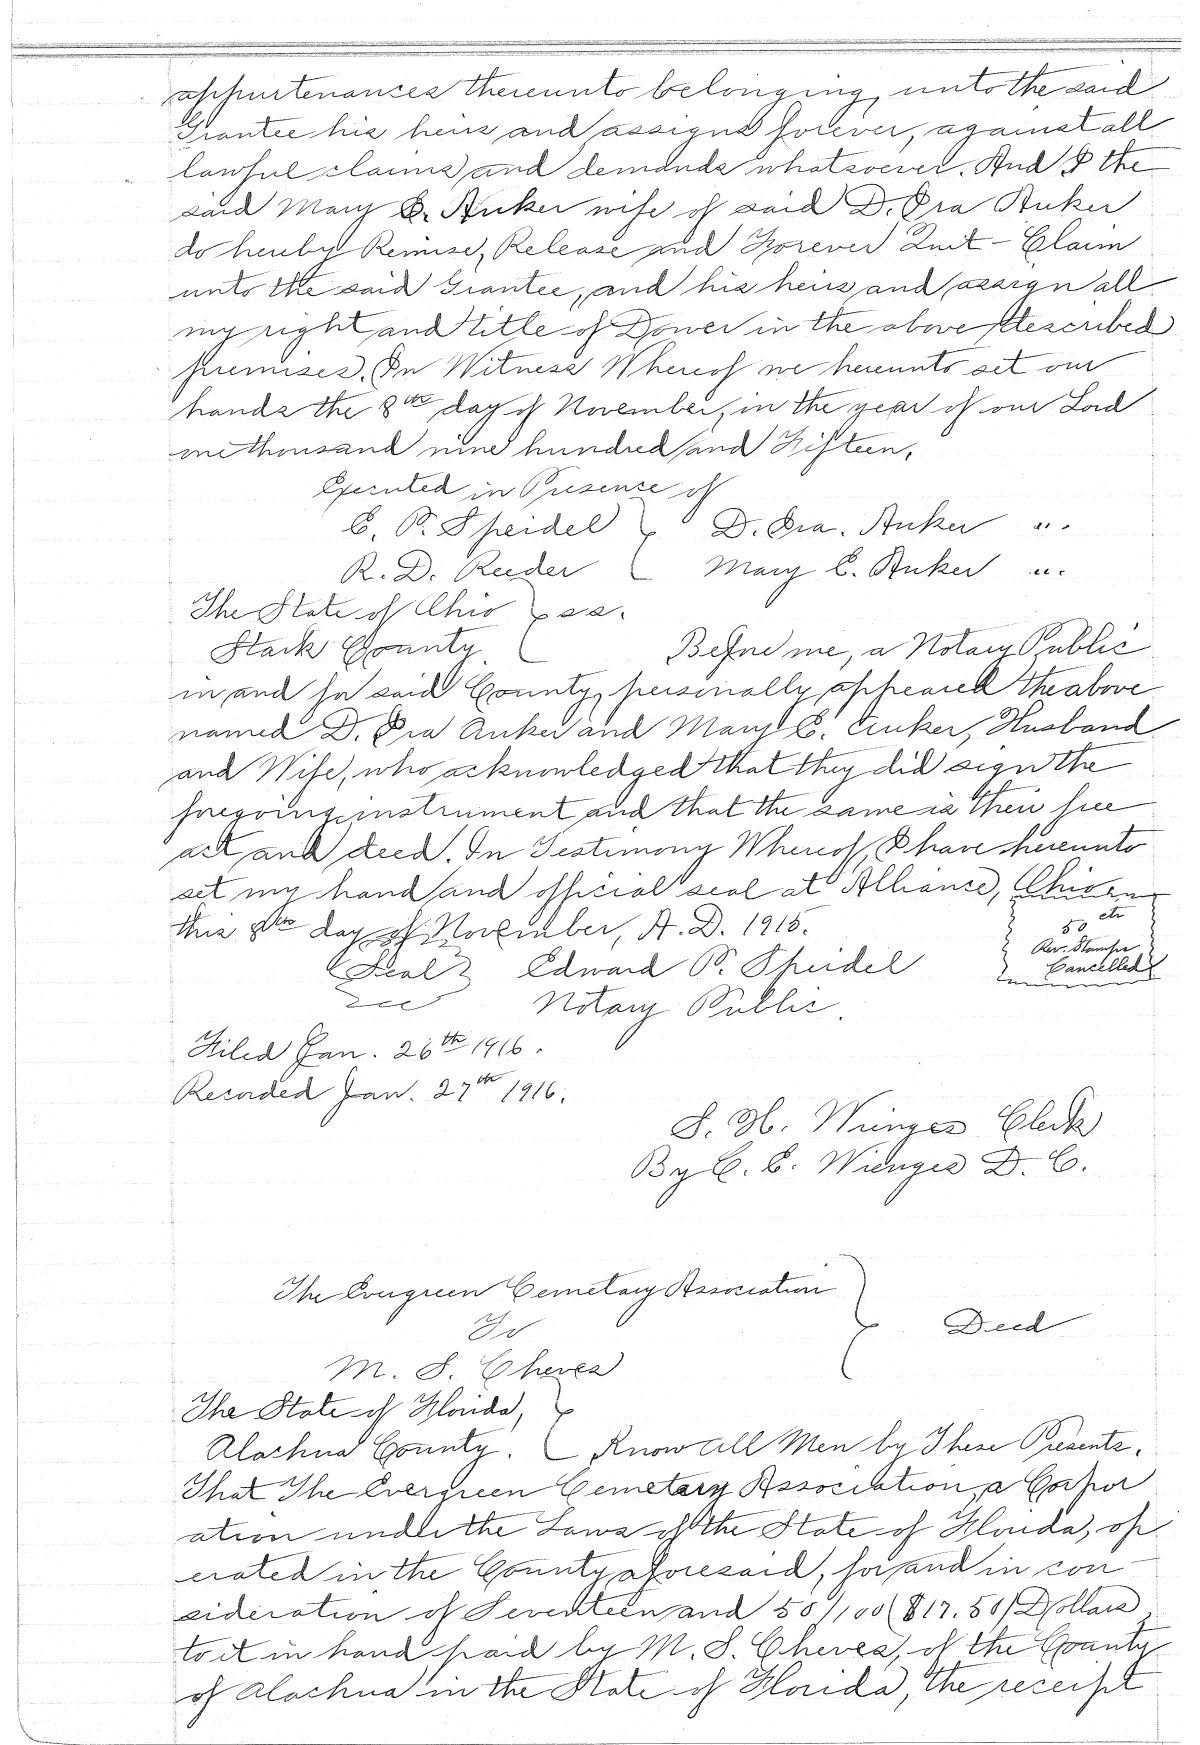 appurtenances thereunto belonging, unto the said
Grantee his heirs and assigns forever, against all
lawful claims and demands whatsoever. And I the
said Mary E. Auker wife of said D. Ira Auker
do hereby Remise, Release and Forever Quit-Claim
unto the said Grantee, and his heirs and assign all
my right and title of Dower in the above described
premises. In Witness Whereof we hereunto set our
hands the 8th day of November, in the year of our Lord
one thousand nine hundred and Fifteen.
Executed in Presence of
E. P. Speidel } D. Ira. Auker
R. D. Reeder { Mary E. Auker
The State of Ohio } ss.
Stark County { Before me, a Notary Public
in and for said County, personally appeared the above
named D. Ira Auker and Mary E. Auker, Husband
and Wife, who acknowledged that they did sign the
foregoing instrument and that the same is their free
act and deed. In Testimony Whereof, I have hereunto
set my hand and official seal at Alliance, Ohio
this 8th day of November, A. D. 1915.
50 cts
Rev. Stamps
Cancelled
(Seal) Edward P. Speidel
Notary Public.
Filed Jan. 26th 1916.
Recorded Jan. 27th 1916.
S. H. Wienges Clerk
By C. E. Wienges D. C.
The Evergreen Cemetary Association
To } Deed
M. S. Cheves
The State of Florida, }
Alachua County. { Know All Men by These Presents.
That The Evergreen Cemetary Association, a Corpor
ation under the Laws of the State of Florida, op
erated in the County aforesaid, for and in con
sideration of Seventeen and 50/100 ($17.50) Dollars
to it in hand paid by M. S. Cheves, of the County
of Alachua in the State of Florida, the receipt